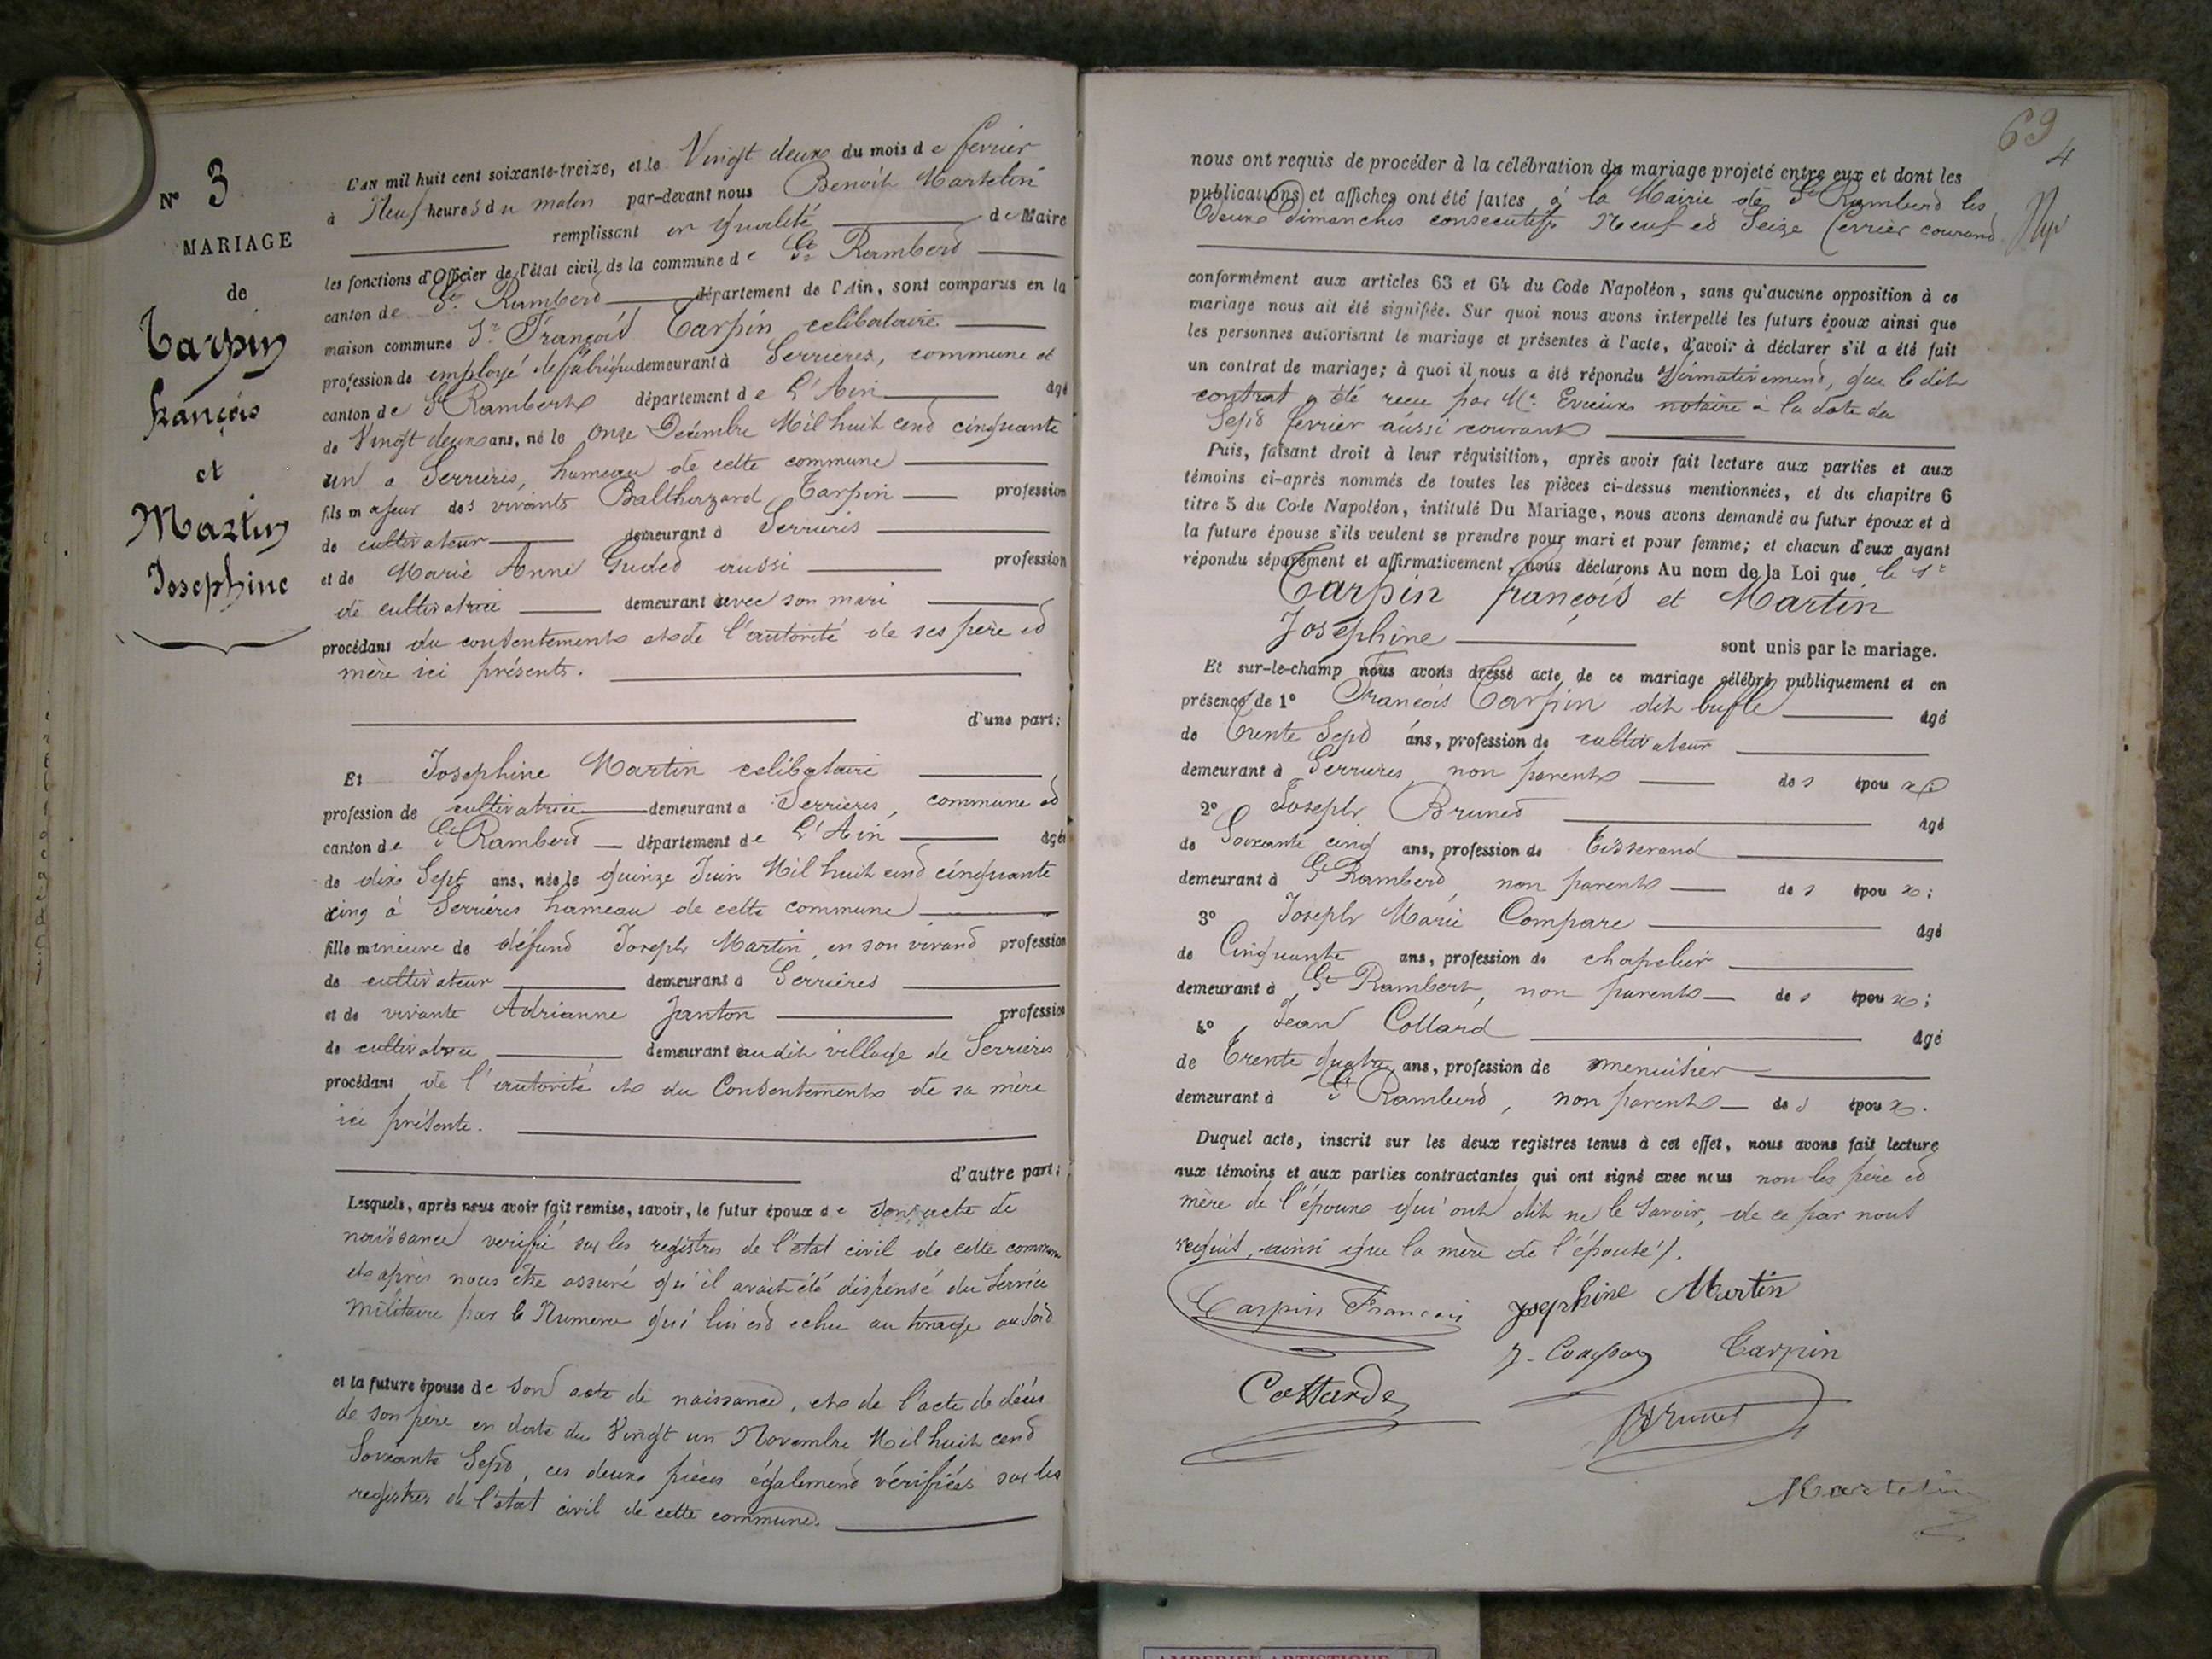 N° 3
MARIAGE
de
Tarpin
françois
et
Martin
Josephine
L'AN mil huit cent soixante-treize, et le Vingt deux du mois de fevrier
à Neuf heures du matin par-devant nous Benoit Martelin
remplissant en qualité de Maire
les fonctions d'Officier de l'état civil de la commune de St Rambert
canton de St Rambert département de l'Ain, sont comparus en la
maison commune Sr François Tarpin celibataire
profession de employé de fabrique demeurant à Serrières, commune et
canton de St Rambert département de L'Ain âgé
de Vingt deux ans, né le Onze Décembre Mil huit cent cinquante
un a Serrières, hameau de cette commune
fils majeur des vivants Balthazard Tarpin profession
de cultivateur demeurant à Serrières
et de Marie Anne Gudet aussi profession
de cultivatrice demeurant avec son mari
procédant du consentement et de l'autorité de ses père et
mère ici présents.
d'une part;
Et Josephine Martin celibataire
profession de cultivatrice demeurant a Serrières, commune et
canton de St Rambert département de L'Ain âgée
de dix Sept ans, née le quinze Juin Mil huit cent cinquante
cinq à Serrières hameau de cette commune
fille mineure de défunt Joseph Martin, en son vivant profession
de cultivateur demeurant à Serrières
et de vivante Adrianne Janton profession
de cultivatrice demeurant audit village de Serrières
procédant de l'autorité et du Consentement de sa mère
ici présente.
d'autre part;
Lesquels, après nous avoir fait remise, savoir, le futur époux de son acte de
naissance verifié sur les registres de l'état civil de cette commune
et après nous être assuré qu'il avait été dispensé du Service
militaire par le Numero qui lui est echu au tirage au sort
et la future épouse de son acte de naissance, et de l'acte de décès
de son père en date du Vingt un Novembre Mil huit cent
Soixante Sept, ces deux pièces également vérifiées sur les
registres de l'état civil de cette commune.
69
4
nous ont requis de procéder à la célébration du mariage projeté entre eux et dont les
publications et affiches ont été faites à la Mairie de St Rambert les
deux dimanches consecutifs Neuf et Seize fevrier courant
conformément aux articles 63 et 64 du Code Napoléon, sans qu'aucune opposition à ce
mariage nous ait été signifiée. Sur quoi nous avons interpellé les futurs époux ainsi que
les personnes autorisant le mariage et présentes à l'acte, d'avoir à déclarer s'il a été fait
un contrat de mariage; à quoi il nous a été répondu affirmativement, que le dit
contrat a été recu par Me notaire à la date du
Sept fevrier aussi courant
Puis, faisant droit à leur réquisition, après avoir fait lecture aux parties et aux
témoins ci-après nommés de toutes les pièces ci-dessus mentionnées, et du chapitre 6
titre 5 du Code Napoléon, intitulé Du Mariage, nous avons demandé au futur époux et à
la future épouse s'ils veulent se prendre pour mari et pour femme; et chacun d'eux ayant
répondu séparément et affirmativement, nous déclarons Au nom de la Loi que le Sr
Tarpin françois et Martin
Josephine sont unis par le mariage.
Et sur-le-champ nous avons dressé acte de ce mariage célébré publiquement et en
présence de 1° François Tarpin dit buffle âgé
de Trente Sept ans, profession de cultivateur
demeurant à Serrières, non parent des époux;
2° Joseph Brunet âgé
de Soixante cinq ans, profession de Tisserand
demeurant à St Rambert, non parent des époux;
3° Joseph Marie Compare âgé
de Cinquante ans, profession de chapelier
demeurant à St Rambert, non parent des époux;
4° Jean Collard âgé
de Trente quatre ans, profession de menuisier
demeurant à St Rambert, non parent des époux.
Duquel acte, inscrit sur les deux registres tenus à cet effet, nous avons fait lecture
aux témoins et aux parties contractantes qui ont signé avec nous non les père et
mère de l'époux qui ont dit ne le savoir, de ce par nous
requis, ainsi que la mère de l'épouse.
Tarpin Francois Josephine Martin
J. Compare Tarpin
Collard
Brunet
Martelin